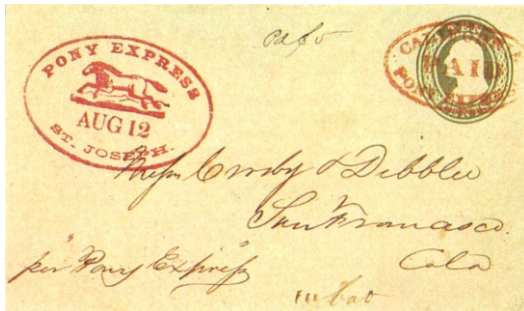 PONY EXPRESS
AUG 12
ST. JOSEPH.
PAID
PONY
Messrs Crosby & Dibblee
San Francisco.
Cala
per "Pony Express"